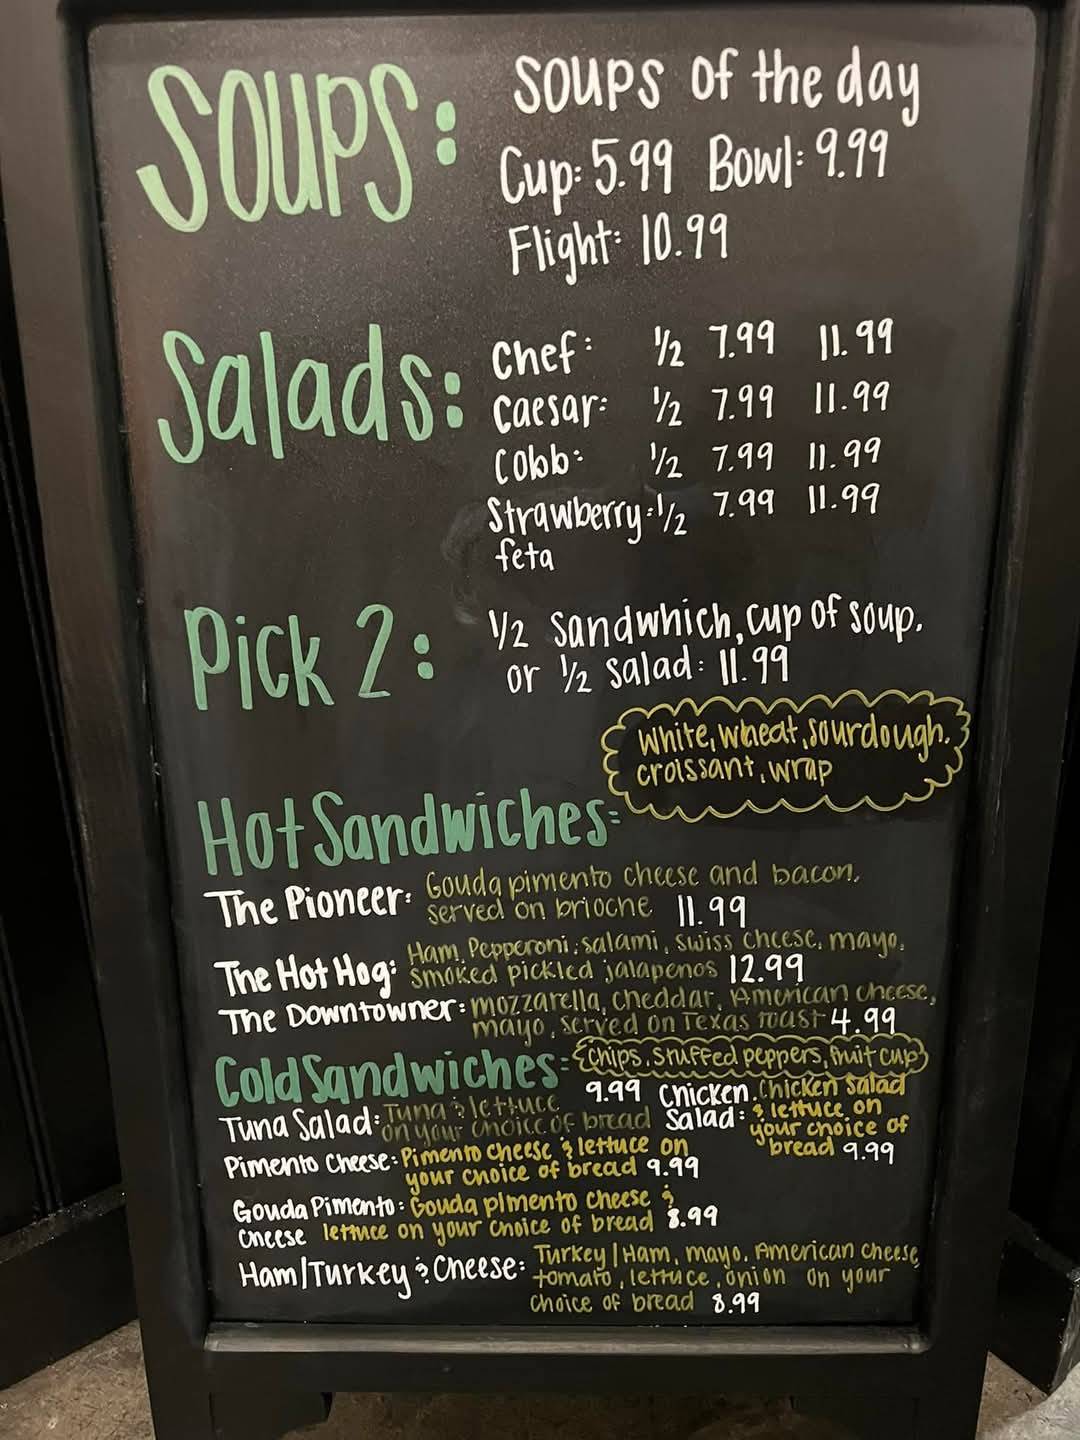 Soups:
Soups of the day
Cup: 5.99 Bowl: 9.99
Flight: 10.99
Salads:
Chef: 1/2 7.99 11.99
Caesar: 1/2 7.99 11.99
Cobb: 1/2 7.99 11.99
Strawberry: 1/2 7.99 11.99
feta
Pick 2:
1/2 Sandwhich, cup of soup.
or 1/2 salad: 11.99
white, wheat, sourdough,
croissant, wrap
Hot Sandwiches:
The Pioneer: Gouda pimento cheese and bacon,
served on brioche 11.99
The Hot Hog: Ham, Pepperoni, salami, swiss cheese, mayo,
smoked pickled jalapenos 12.99
The Downtowner: mozzarella, cheddar, American cheese,
mayo, served on Texas toast 4.99
Cold Sandwiches:
chips, stuffed peppers, fruit cup
Tuna Salad: Tuna & lettuce 9.99
on your choice of bread
Chicken Salad: Chicken salad
& lettuce on
your choice of
bread 9.99
Pimento Cheese: Pimento cheese & lettuce on
your choice of bread 9.99
Gouda Pimento: Gouda pimento cheese &
Cheese lettuce on your choice of bread 8.99
Ham/Turkey & Cheese: Turkey/Ham, mayo, American cheese,
tomato, lettuce, onion on your
choice of bread 8.99